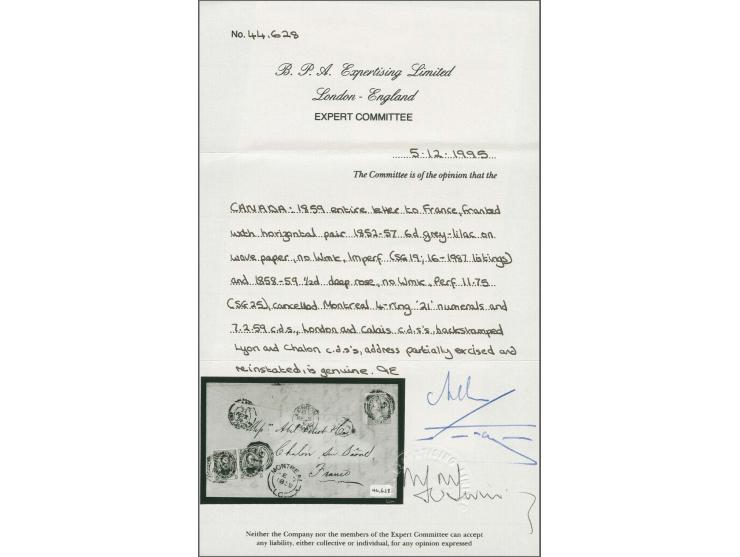 No. 44.628
B. P. A. Expertising Limited
London - England
EXPERT COMMITTEE
5.12.1995
The Committee is of the opinion that the
CANADA:- 1859 entire letter to France, franked
with horizontal pair 1852-57 6d grey-lilac on
wove paper, no Wmk, Imperf (SG19; 16-1987 listings)
and 1858-59 ½d deep rose, no Wmk, Perf 11.75
(SG25), cancelled Montreal 4-ring '21' numerals and
7.2.59 c.d.s., London and Calais c.d.s's, backstamped
Lyon and Chalon c.d.s's, address partially excised and
reinstated, is genuine. 9E
Chalon sur Saône
France
MONTREAL
44,628
Neither the Company nor the members of the Expert Committee can accept
any liability, either collective or individual, for any opinion expressed